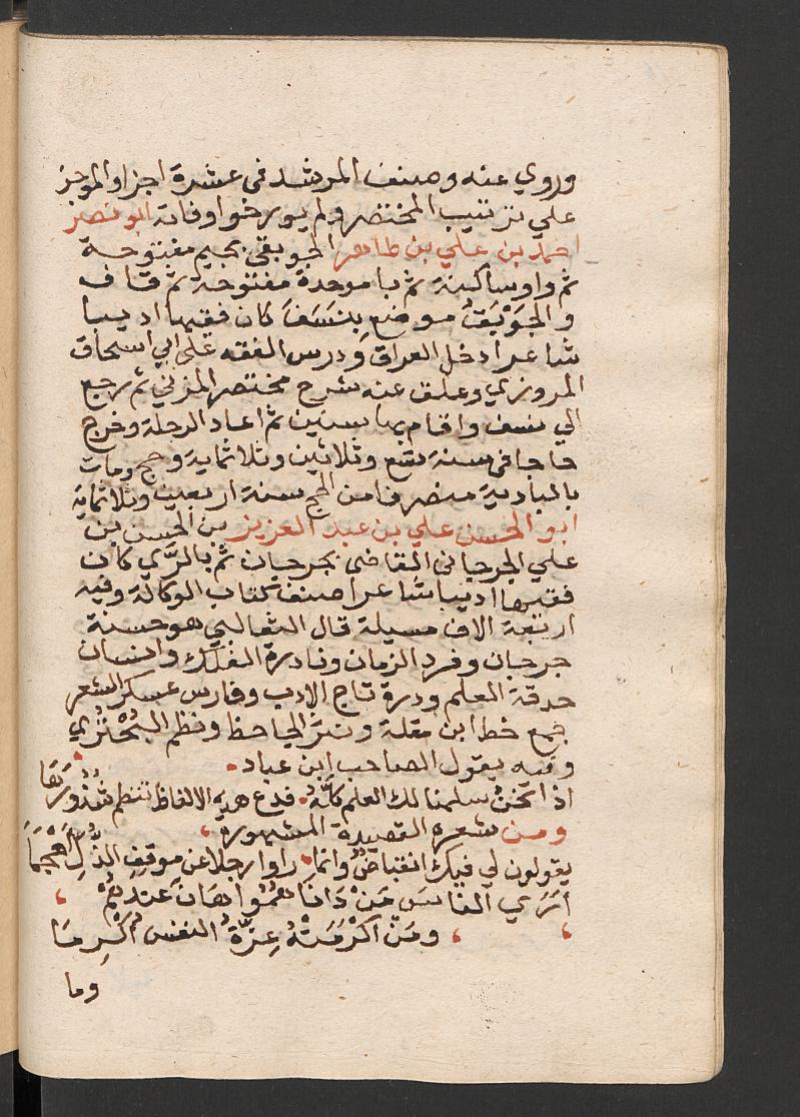 وروي عنه وصنف المرشد في عشرة اجزا والموجز
علي ترتيب المختصر ولم يورخوا وفاته ابو نصر
احمد بن علي بن طاهر الجوبقي بجيم مفتوحة
ثم واو ساكنة ثم با موحدة مفتوحة ثم قاف
والجَوْبَقُ موضع بنَسَفَ كان فقيها اديبا
شاعرا دخل العراق ودرس الفقه على ابي اسحاق
المروزي وعلق عنه شرح مختصر المزني ثم رجع
الي نسف واقام بها سنين ثم اعاد الرحلة وخرج
حاجا في سنة تسع وثلاثين وثلاثماية وحج ومات
بالبادية منصرفا من الحج سنة اربعين وثلاثماية
ابو الحسن علي بن عبد العزيز بن الحسن بن
علي الجرجاني القاضي بجرجان ثم بالرَّي كان
فقيها اديبا شاعرا صنف كتاب الوكالة وفيه
اربعة الاف مسيلة قال الثعالبي هو حسنة
جرجان وفرد الزمان ونادرة الفلك وانسان
حدقة العلم ودرة تاج الادب وفارس عسكر الشعر
جمع خط ابن مقلة ونثر الجاحظ ونظم البُحْتُري
وفيه يقول الصاحب ابن عباد
اذا نحن سلمنا لك العلم كلَّهُ فدع هذه الالفاظ ننظم شُذُورَهَا
ومن شعره القصيدة المشهورة
يقولون لي فيك انقباضٌ وانما راوا رجلا عن موقفِ الذُّلِّ اَحْجَمَا
اَرَي الناسَ مَنْ دَانَاهُمُوا هَانَ عندهُمْ
ومَنْ اَكْرَمَتْهُ عِزَّةُ النفس اُكْرِمَا
وما